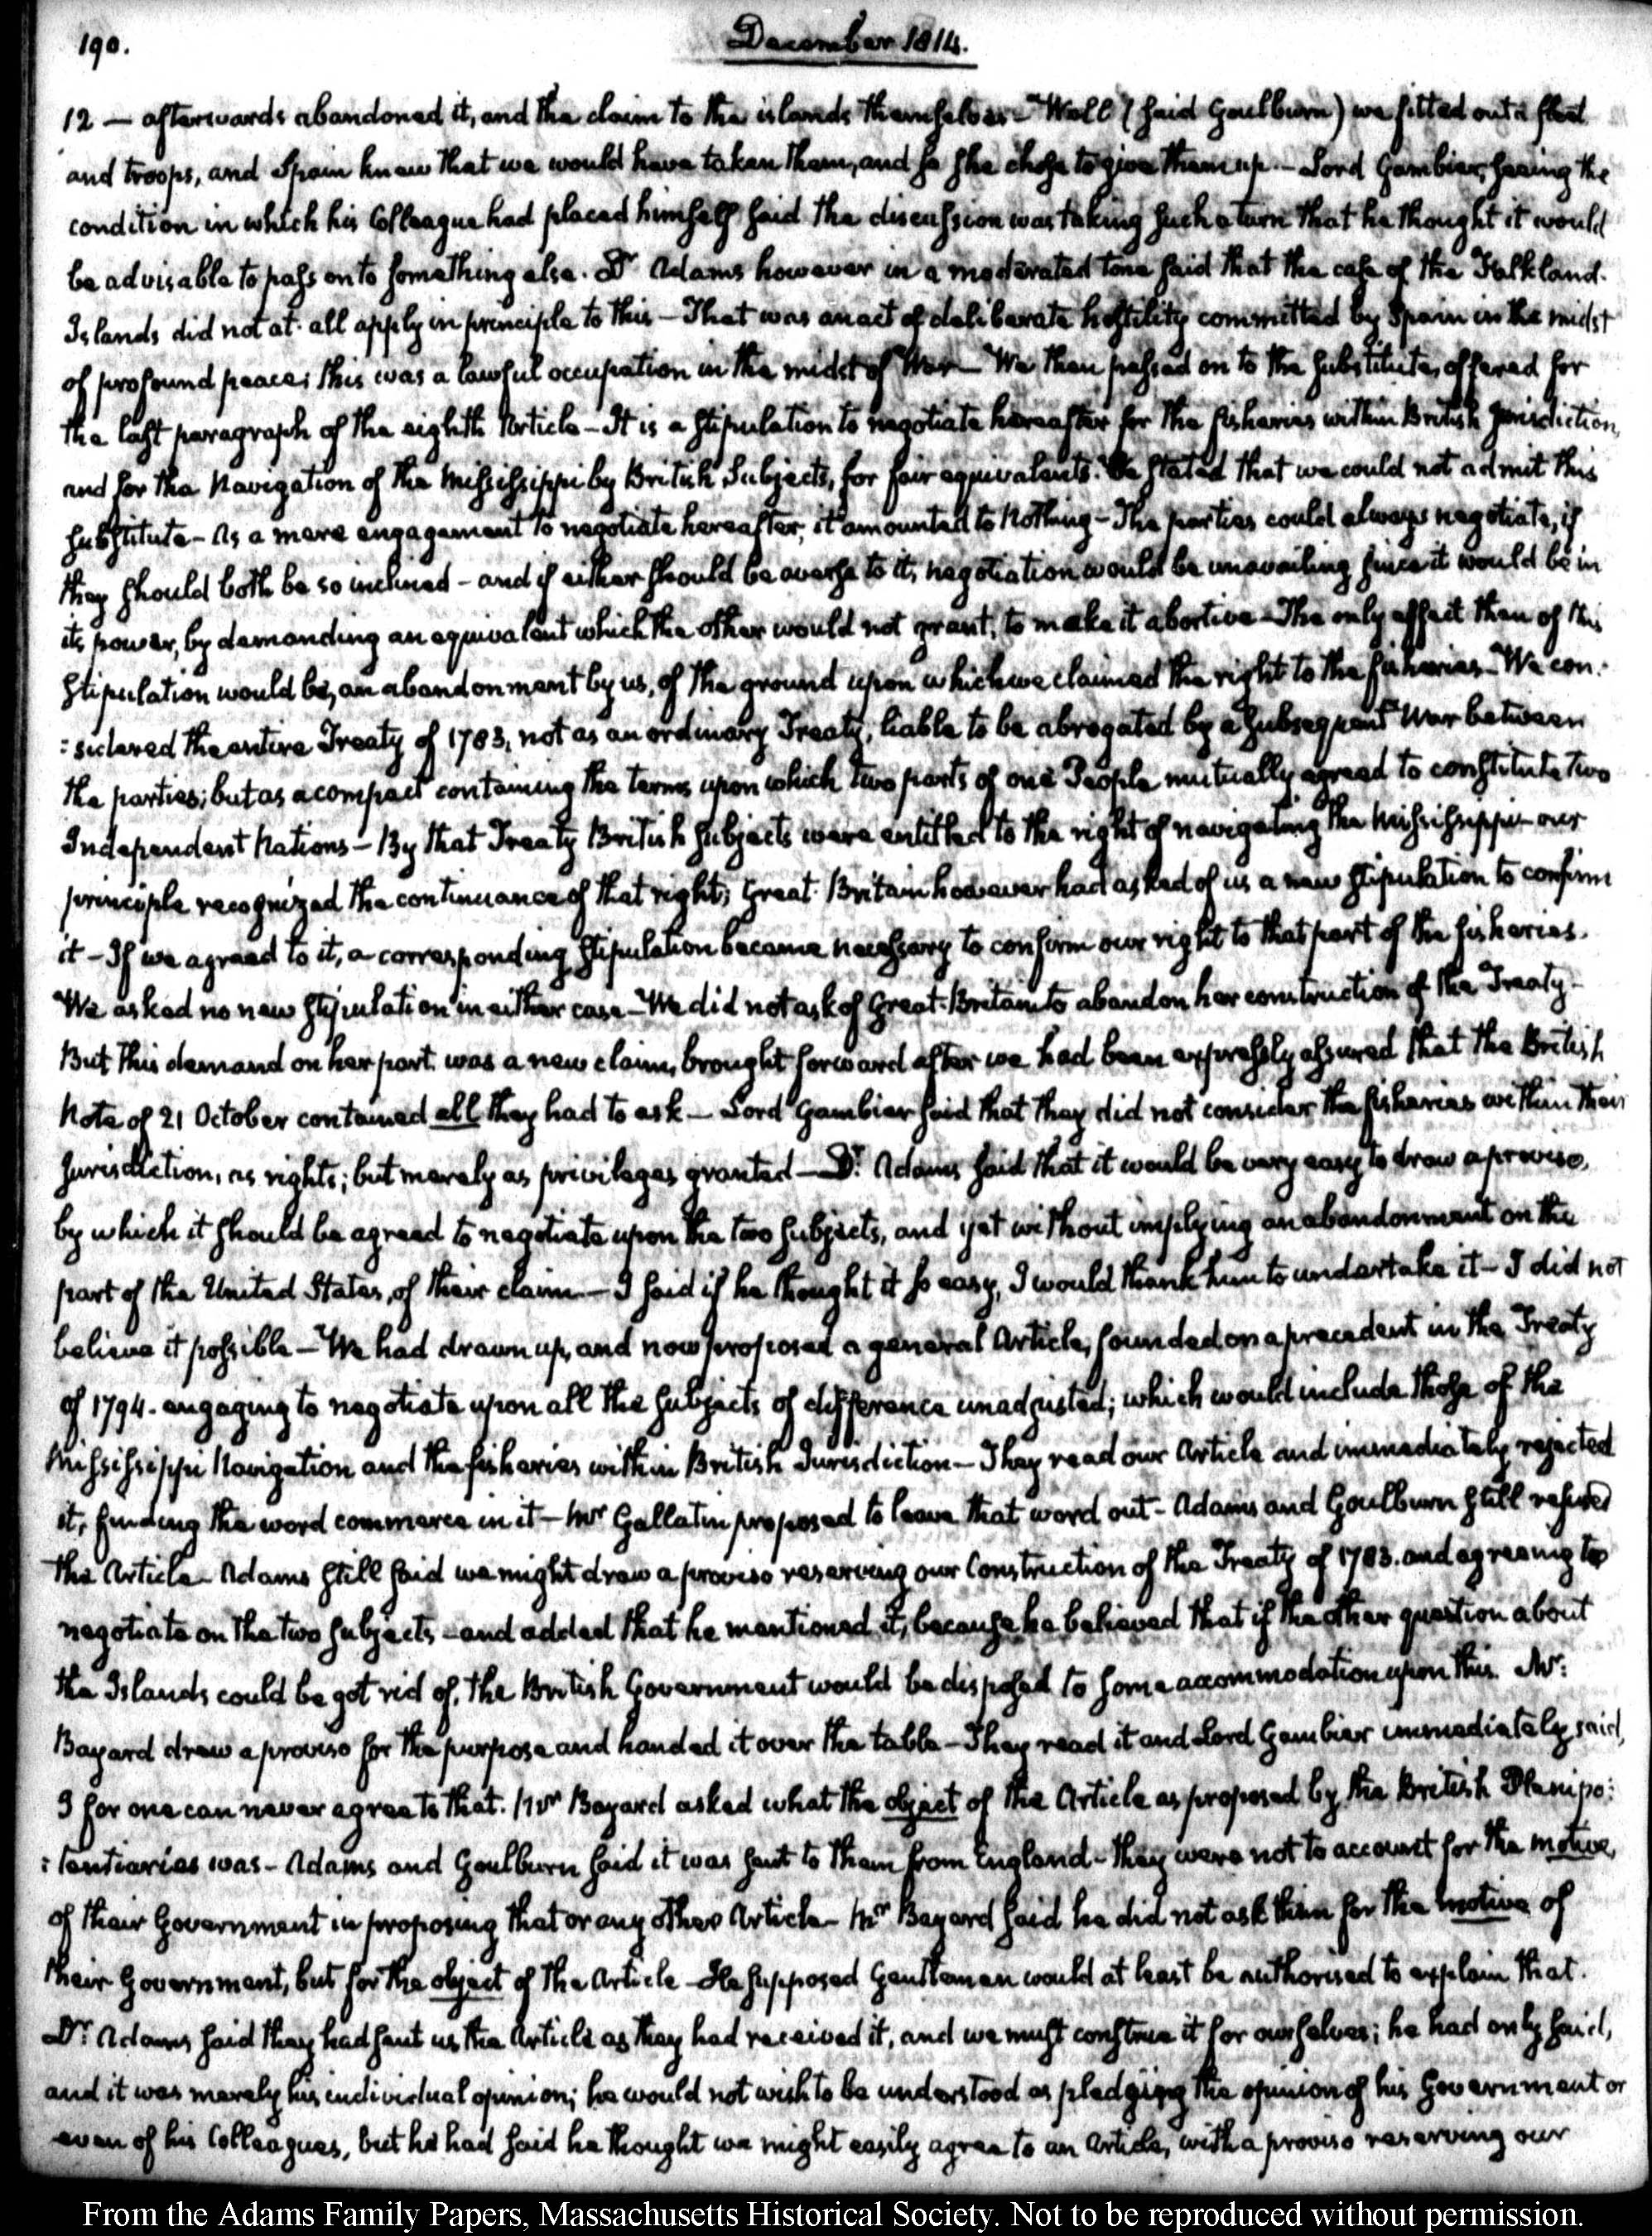 190.
December 1814.
12 — afterwards abandoned it, and the claim to the islands themselves — Well (said Goulburn) we fitted out a fleet
and troops, and Spain knew that we would have taken them, and so she chose to give them up. — Lord Gambier, seeing the
condition in which his Colleague had placed himself said the discussion was taking such a turn that he thought it would
be advisable to pass on to something else. Dr. Adams however in a moderated tone said that the case of the Falkland-
Islands did not at all apply in principle to this — That was an act of deliberate hostility committed by Spain in the midst
of profound peace; this was a lawful occupation in the midst of War — We then passed on to the substitute, offered for
the last paragraph of the eighth Article — It is a stipulation to negotiate hereafter for the fisheries within British jurisdiction,
and for the Navigation of the Mississippi by British Subjects, for fair equivalents. We stated that we could not admit this
substitute — As a mere engagement to negotiate hereafter, it amounted to Nothing — The parties could always negotiate, if
they should both be so inclined — and if either should be averse to it, negotiation would be unavailing since it would be in
its power, by demanding an equivalent which the other would not grant, to make it abortive — The only effect then of this
stipulation would be, an abandonment by us, of the ground upon which we claimed the right to the fisheries — We con:
:sidered the entire Treaty of 1783, not as an ordinary Treaty, liable to be abrogated by a subsequent War between
the parties; but as a compact containing the terms upon which two parts of one People mutually agreed to constitute two
Independent Nations — By that Treaty British subjects were entitled to the right of navigating the Mississippi — our
principle recognized the continuance of that right; Great-Britain however had asked of us a new stipulation to confirm
it — If we agreed to it, a corresponding stipulation became necessary to confirm our right to that part of the fisheries.
We asked no new stipulation in either case — We did not ask of Great-Britain to abandon her construction of the Treaty —
But this demand on her part was a new claim, brought forward after we had been expressly assured that the British
Note of 21 October contained all they had to ask — Lord Gambier said that they did not consider the fisheries within their
jurisdiction, as rights; but merely as privileges granted — Dr. Adams said that it would be very easy to draw a proviso,
by which it should be agreed to negotiate upon the two subjects, and yet without implying an abandonment on the
part of the United States, of their claim — I said if he thought it so easy, I would thank him to undertake it — I did not
believe it possible — We had drawn up, and now proposed a general Article, founded on a precedent in the Treaty
of 1794. engaging to negotiate upon all the subjects of difference unadjusted; which would include those of the
Mississippi Navigation and the fisheries within British Jurisdiction — They read our Article and immediately rejected
it, finding the word commerce in it — Mr Gallatin proposed to leave that word out — Adams and Goulburn still refused
the Article — Adams still said we might draw a proviso reserving our Construction of the Treaty of 1783. and agreeing to
negotiate on the two subjects — and added that he mentioned it, because he believed that if the other question about
the Islands could be got rid of, the British Government would be disposed to some accommodation upon this. Mr:
Bayard drew a proviso for the purpose and handed it over the table — They read it and Lord Gambier immediately said,
I for one can never agree to that. Mr Bayard asked what the object of the Article as proposed by the British Plenipo:
:tentiaries was — Adams and Goulburn said it was sent to them from England — they were not to account for the motive,
of their Government in proposing that or any other Article — Mr Bayard said he did not ask them for the motive of
their Government, but for the object of the Article — He supposed Gentlemen would at least be authorised to explain that.
Dr. Adams said they had sent us the Article as they had received it, and we must construe it for ourselves; he had only said,
and it was merely his individual opinion; he would not wish to be understood as pledging the opinion of his Government or
even of his Colleagues, but he had said he thought we might easily agree to an Article, with a proviso reserving our
From the Adams Family Papers, Massachusetts Historical Society. Not to be reproduced without permission.